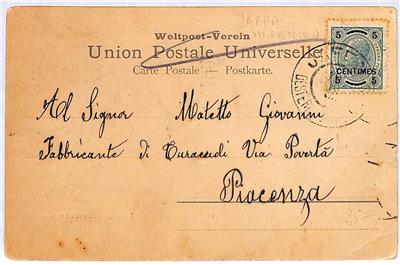 JAFFA
Weltpost-Verein
Union Postale Universelle
Carte Postale – Postkarte.
5 5
CENTIMES
5 5
Al Signor Matetto Giovanni
Fabbricante di Turaccioli Via Povertà
Piacenza